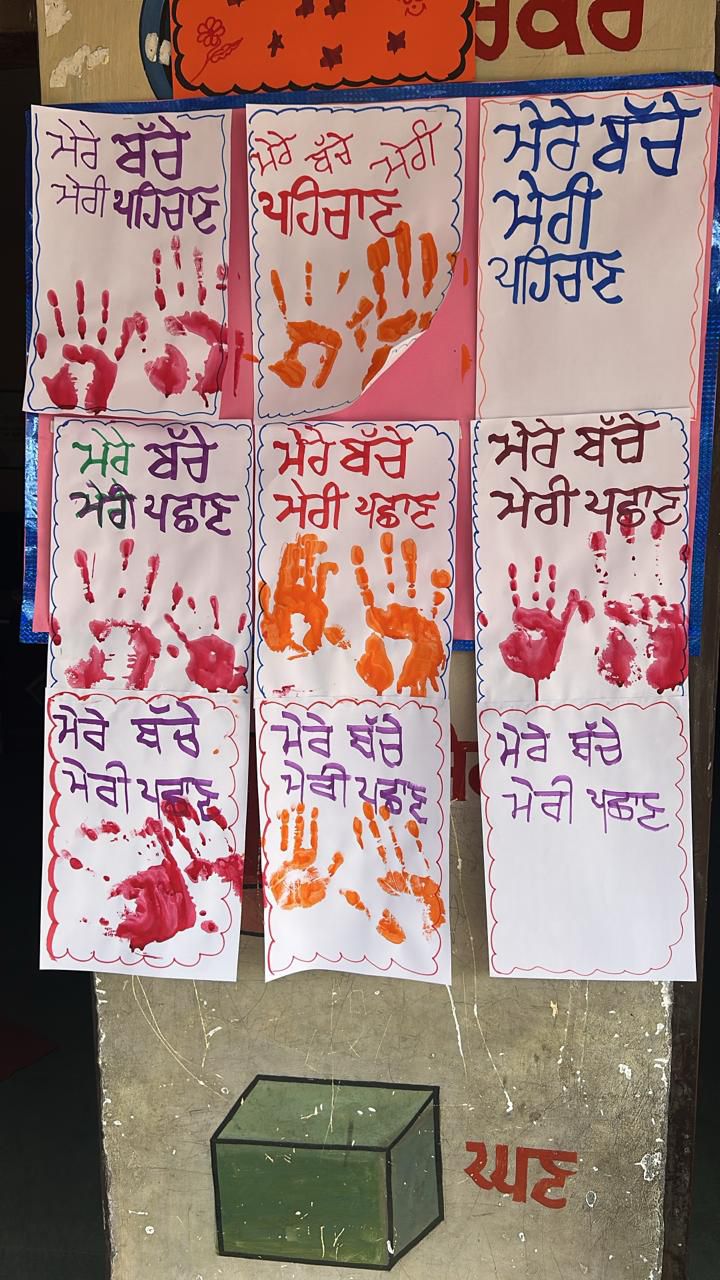 ਚੱਕਰ
ਮੇਰੇ ਬੱਚੇ
ਮੇਰੀ ਪਹਿਚਾਣ
ਮੇਰੇ ਬੱਚੇ ਮੇਰੀ
ਪਹਿਚਾਣ
ਮੇਰੇ ਬੱਚੇ
ਮੇਰੀ
ਪਹਿਚਾਣ
ਮੇਰੇ ਬੱਚੇ
ਮੇਰੀ ਪਛਾਣ
ਮੇਰੇ ਬੱਚੇ
ਮੇਰੀ ਪਛਾਣ
ਮੇਰੇ ਬੱਚੇ
ਮੇਰੀ ਪਛਾਣ
ਮੇਰੇ ਬੱਚੇ
ਮੇਰੀ ਪਛਾਣ
ਮੇਰੇ ਬੱਚੇ
ਮੇਰੀ ਪਛਾਣ
ਮੇਰੇ ਬੱਚੇ
ਮੇਰੀ ਪਛਾਣ
ਘਣ